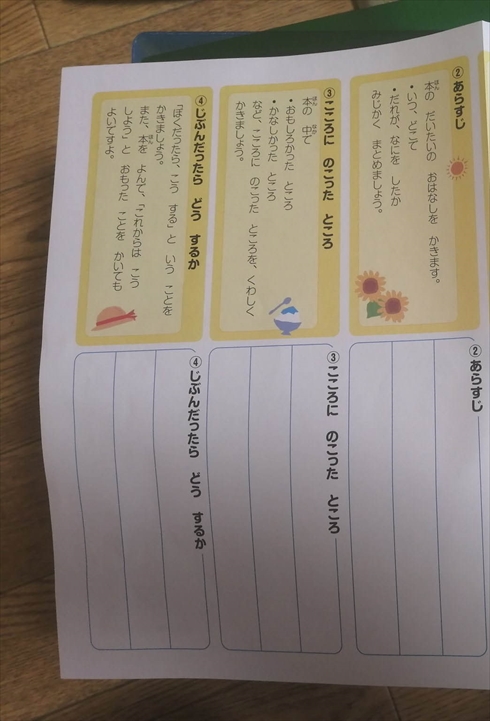 ②あらすじ
本の だいたいの おはなしを かきます。
・いつ、どこで
・だれが、なにを したか
みじかく まとめましょう。
③こころに のこった ところ
本の 中で
・おもしろかった ところ
・かなしかった ところ
など、こころに のこった ところを、くわしく
かきましょう。
④じぶんだったら どう するか
「ぼくだったら、こう する」と いう ことを
かきましょう。
また、本を よんで、「これからは こう
しよう」と おもった ことを かいても
よいですよ。
②あらすじ
③こころに のこった ところ
④じぶんだったら どう するか